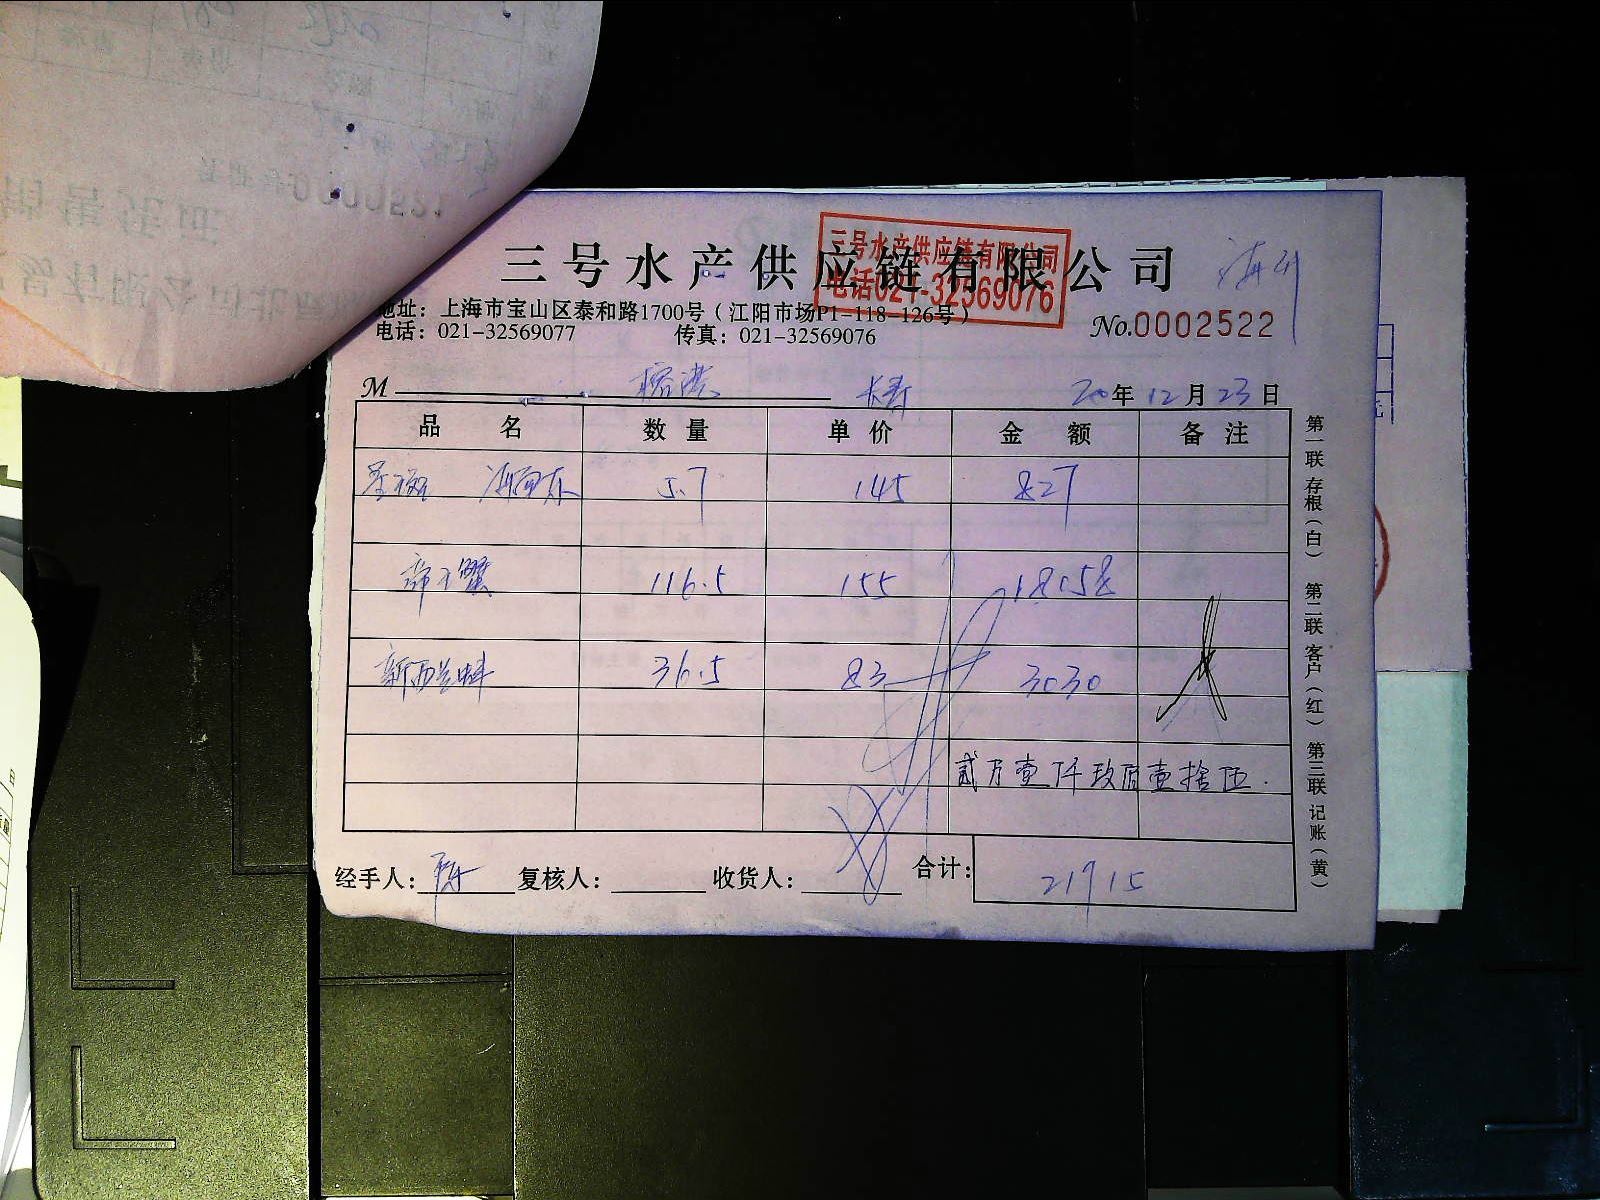 三号水产供应链有限公司
三号水产供应链有限公司
电话021-32569076
地址：上海市宝山区泰和路1700号（江阳市场P1-118-126号）
电话：021-32569077 传真：021-32569076
No.0002522
M 长寿 20年12月23日
品名 数量 单价 金额 备注
5.7 145 827
帝王蟹 116.5 155 18058
新西兰 36.5 83 3030
贰万壹仟玖佰壹拾伍.
经手人： 陈 复核人： 收货人： 合计： 21915
第一联 存根（白） 第二联 客户（红） 第三联 记账（黄）